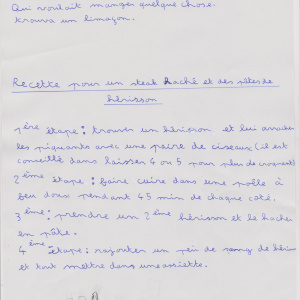 Qui voulait manger quelque chose.
trouva un limaçon.
Recette pour un steak haché et des pâtes de
hérisson.
1ère étape : trouver un hérisson et lui arracher
les piquants avec une paire de ciseaux (il est
conseillé d'en laisser 4 ou 5 pour plus de croquant)
2ème étape : faire cuire dans une poêle à
feu doux pendant 45 min de chaque côté.
3ème : prendre un 2ème hérisson et le hacher
en pâte.
4ème étape : rajouter un peu de sang de héris
et tout mettre dans une assiette.